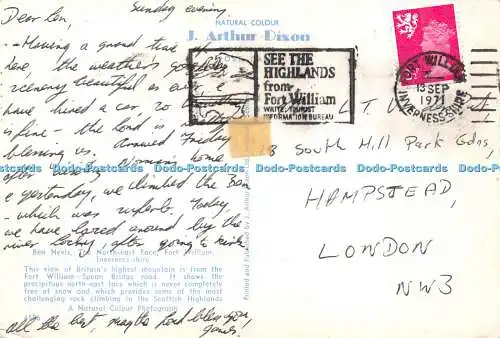 Dear Len, Sunday evening.
-- Having a grand time
here, the weather's
scenery beautiful as ever &
have hired a car so
is fine - the Lord is
blessing us. Arrived Friday
after
& yesterday, we climbed the Ben
- which was superb. Today,
we have lazed around by the
river lochy, after going to kirk
all the best, may the Lord bless you,
James.
NATURAL COLOUR
J. Arthur Dixon
SEE THE
HIGHLANDS
from
Fort William
WRITE: TOURIST
INFORMATION BUREAU
FORT WILLIAM
13 SEP
1971
INVERNESS-SHIRE
18 South Hill Park Gdns,
HAMPSTEAD,
LONDON
NW3
Ben Nevis, The North-east Face, Fort William,
Inverness-shire
This view of Britain's highest mountain is from the
Fort William - Spean Bridge road. It shows the
precipitous north-east face which is never completely
free of snow and which provides some of the most
challenging rock climbing in the Scottish Highlands
A Natural Colour Photograph
Printed and Published by J. Arthur
Dodo-Postcards Dodo-Postcards Dodo-Postcards Dodo-Postcards Dodo-Postcards